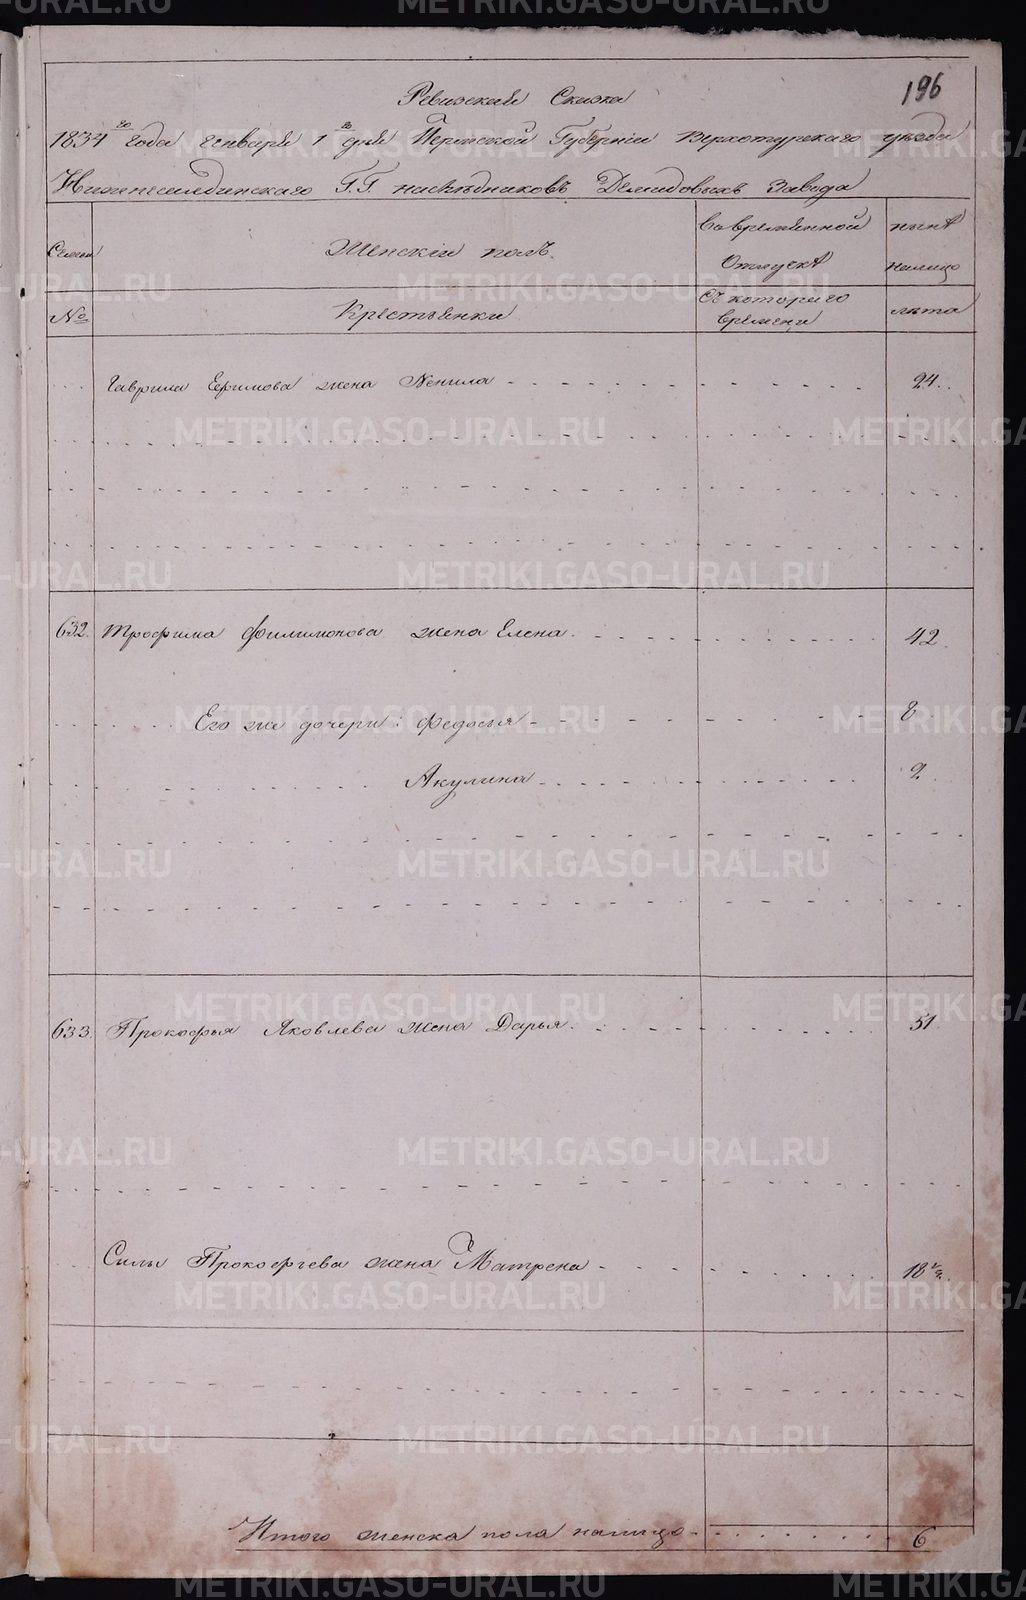 196
Ревизская Сказка
1834го года генваря 1го дня Пермской Губернiи Верхотурскаго уѣзда
Нижнесалдинскаго Г.Г. наслѣдниковъ Демидовыхъ Завода
Семьи
Женскiй полъ.
Во временной отлучкѣ
нынѣ налицо
№
Крестьянки
Съ котораго времени
лѣта
Гаврила Ефимова жена Ненила 24.
632. Трофима Филимонова жена Елена. 42.
Его же дочери: Федосья 8.
Акулина 2.
633. Прокофья Яковлева жена Дарья. 51
Силы Прокофьева жена Матрена 18½.
Итого женска пола налицо 6
METRIKI.GASO-URAL.RU